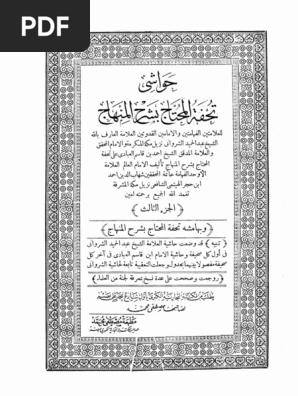 PDF
حواشى
تحفة المحتاج بشرح المنهاج
للعلامتين الفهامتين والامامين القدوتين العلامة العارف بالله
الشيخ عبد الحميد الشروانى نزيل مكة المكرمة والامام المحقق
والعلامة المدقق الشيخ احمد بن قاسم العبادى على تحفة
المحتاج بشرح المنهاج تأليف الامام العالم العلامة
الأوحد الفهامة خاتمة المحققين شهاب الدين احمد
ابن حجر الهيتمى الشافعى نزيل مكة المشرفة
تغمد الله الجميع برحمته امين
﴿ الجزء الثالث ﴾
﴿ وبهامشه تحفة المحتاج بشرح المنهاج ﴾
﴿ تنبيه ﴾ قد وضعت حاشية العلامة الشيخ عبد الحميد الشروانى
فى أول كل صحيفة وحاشية الامام ابن قاسم العبادى فى آخر كل
صحيفة مفصولا بينهما بجدول
﴿ وروجعت وصححت على عدة نسخ بمعرفة لجنة من العلماء ﴾
مطبعة مصطفى محمد